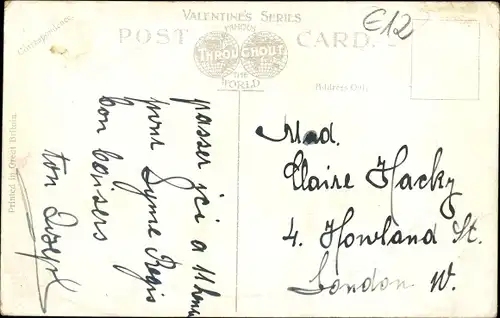 VALENTINE'S SERIES
FAMOUS
THROUGHOUT
THE
WORLD
POST
CARD.
E12
Correspondence.
Address Only.
Printed in Great Britain.
passer ici a 11 heures
pour Lyme Regis
bon baisers
ton Joseph
Mad.
Claire Hacky
4. Howland St.
London W.